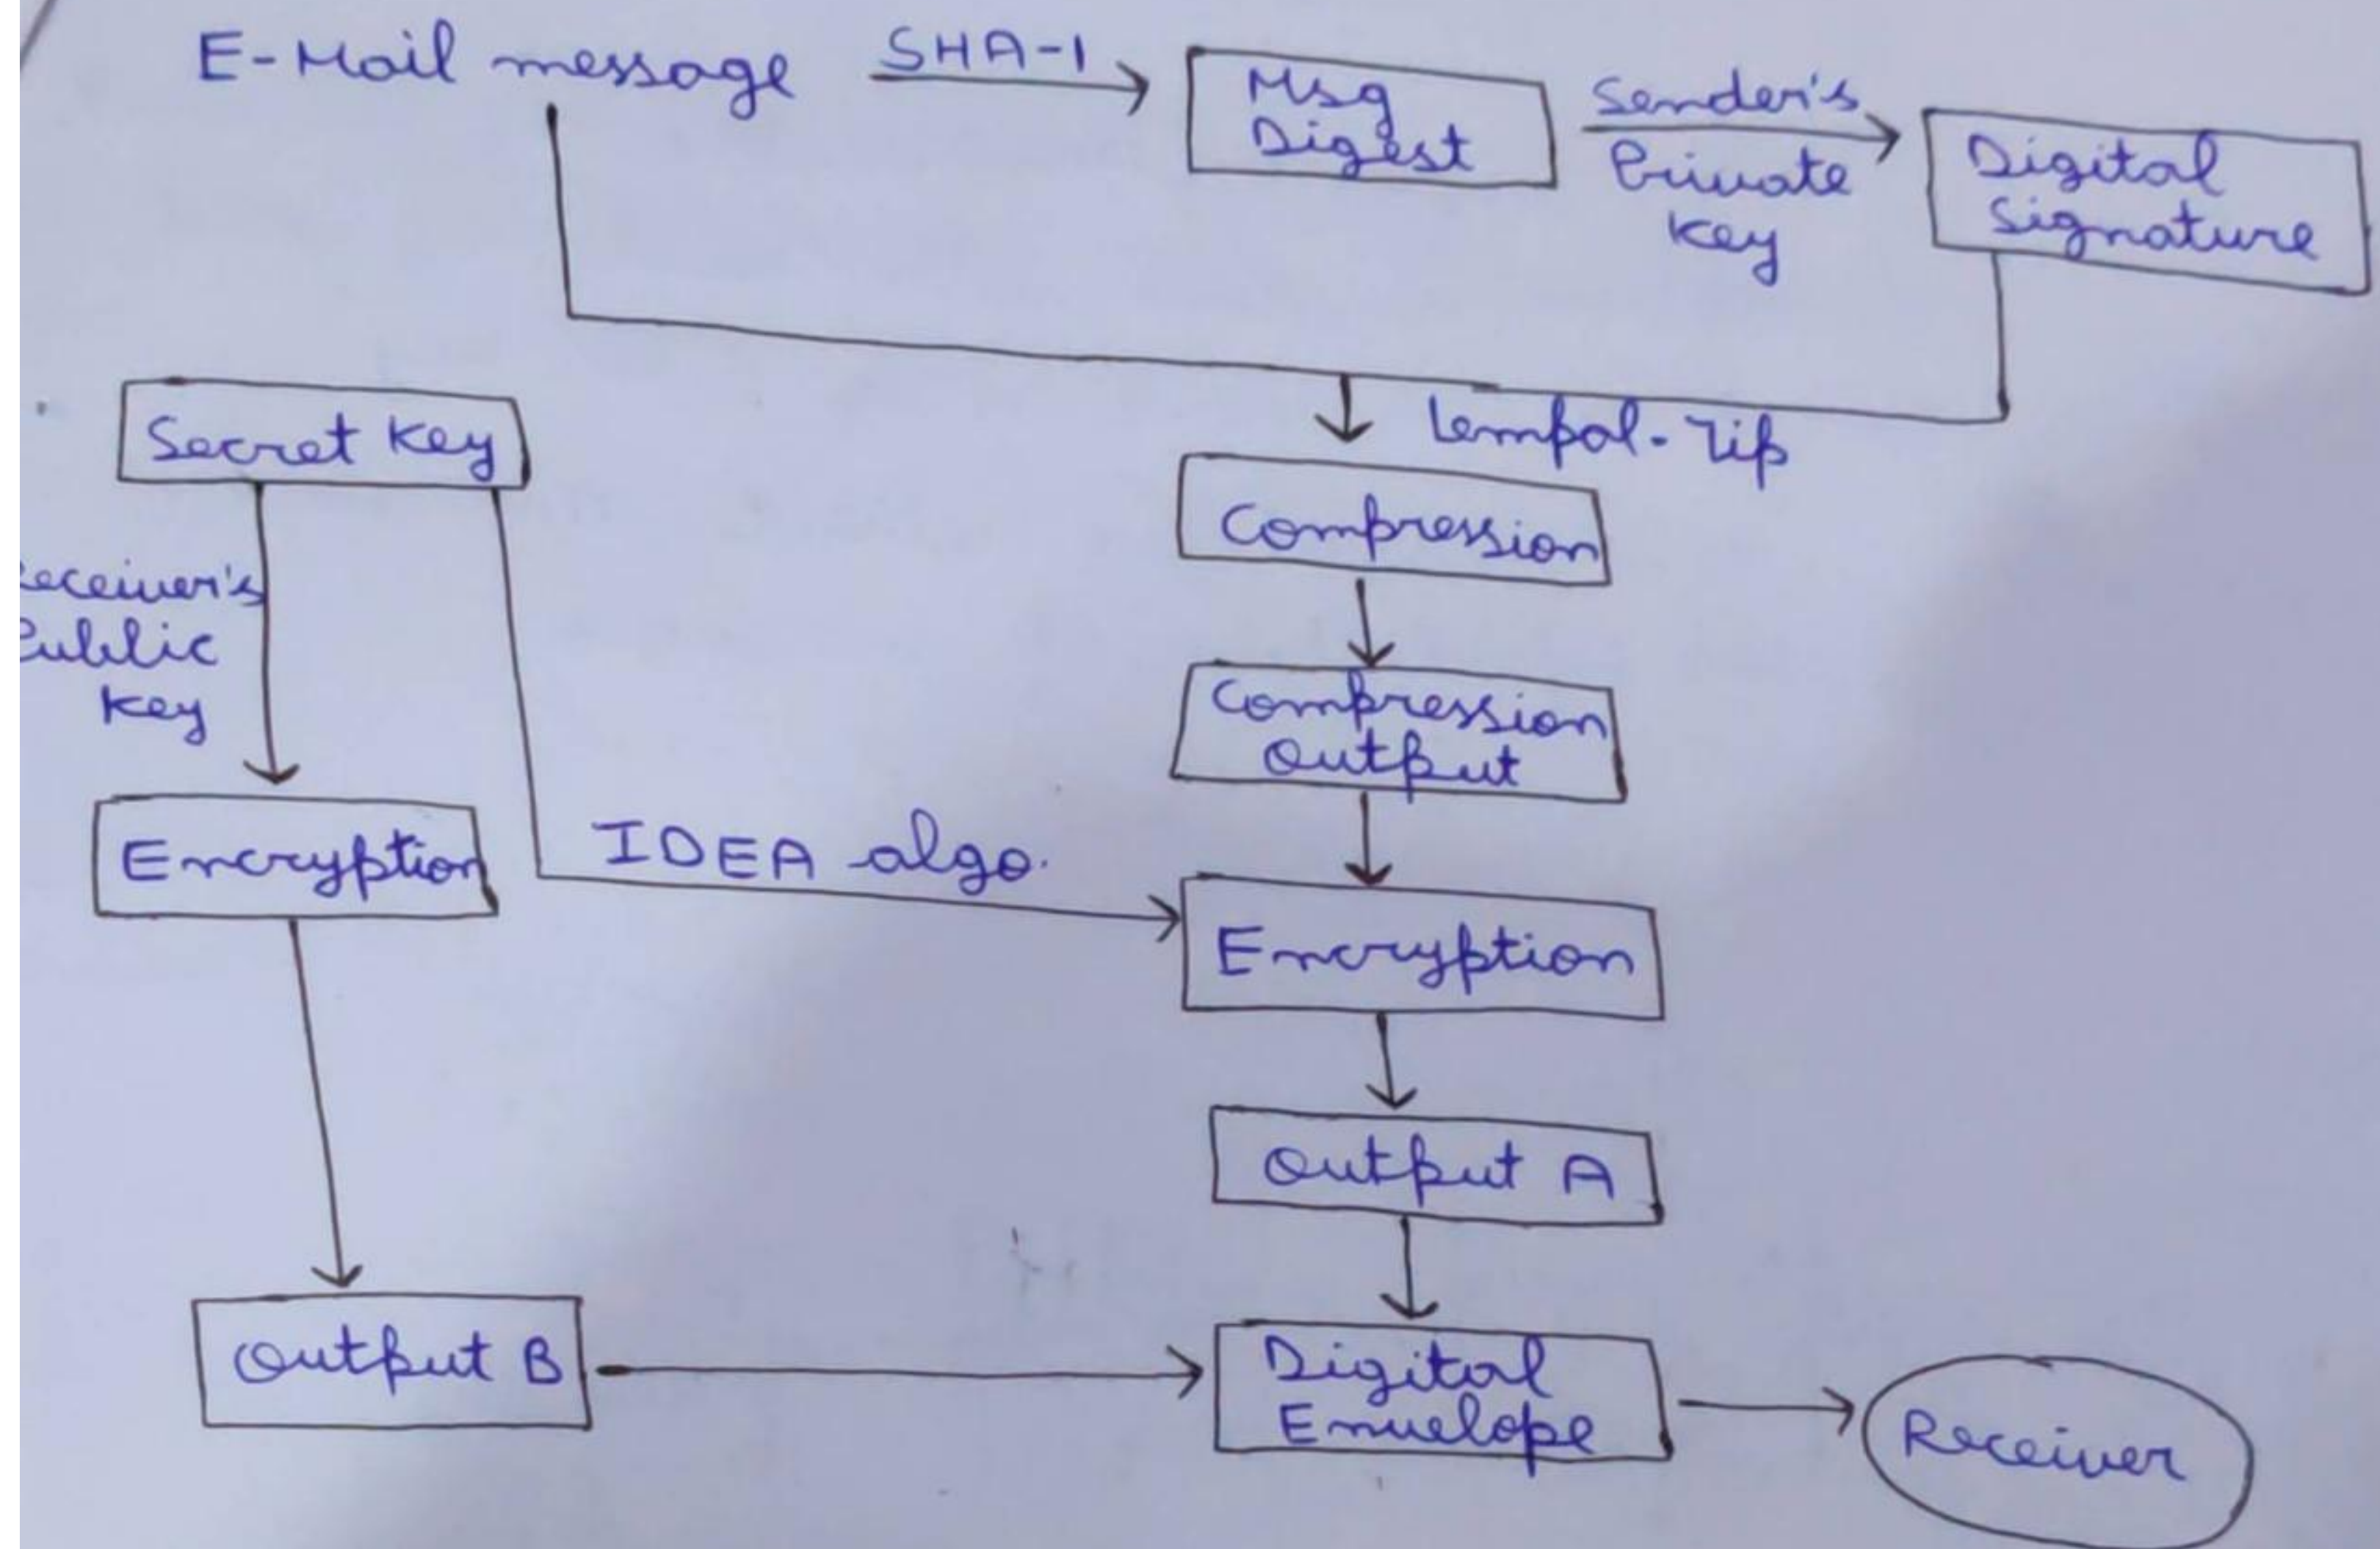 E-Mail message
SHA-1
Msg
Digest
Sender's
Private
key
Digital
Signature
Lempal-Zip
Secret key
Compression
eceiver's
Public
key
Compression
Output
Encryption
IDEA algo.
Encryption
Output A
Output B
Digital
Envelope
Receiver